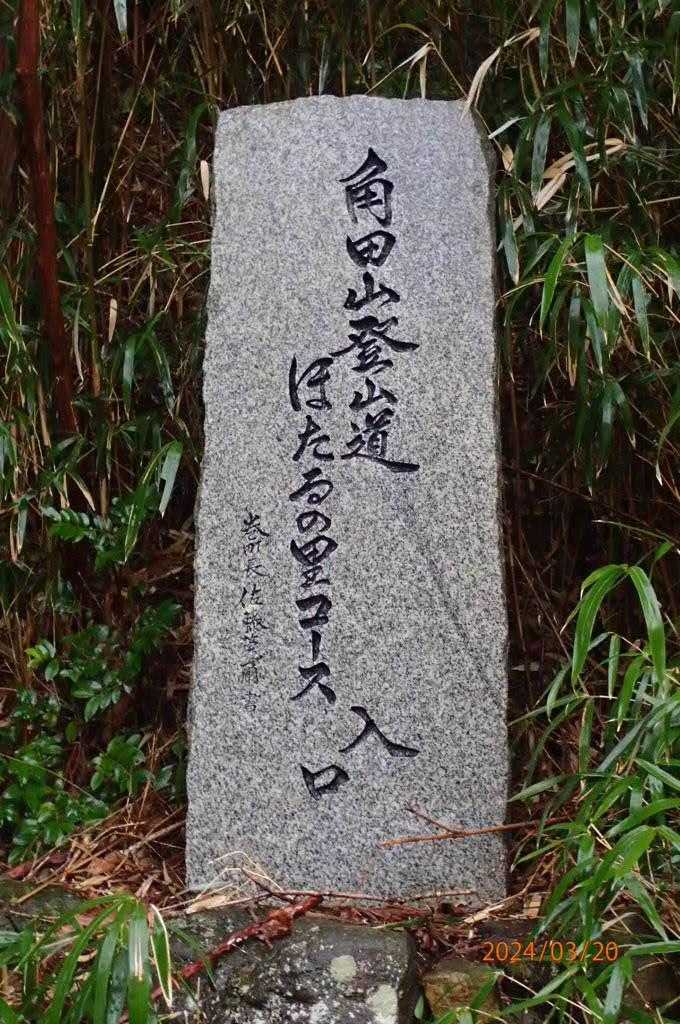 角田山登山道
ほたるの里コース
入口
巻町長 佐藤莞爾 書
2024/03/20